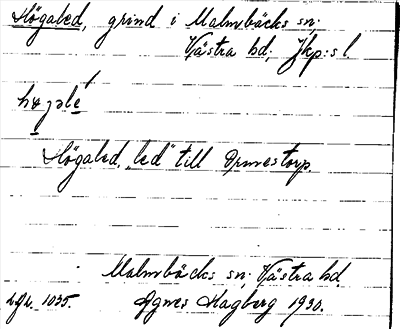 Högaled, grind i Malmbäcks sn;
Västra hd; Jkp:s l.
Högaled, "led" till Ormestorp.
Malmbäcks sn; Västra hd.
1035. Agnes Hagberg 1930.